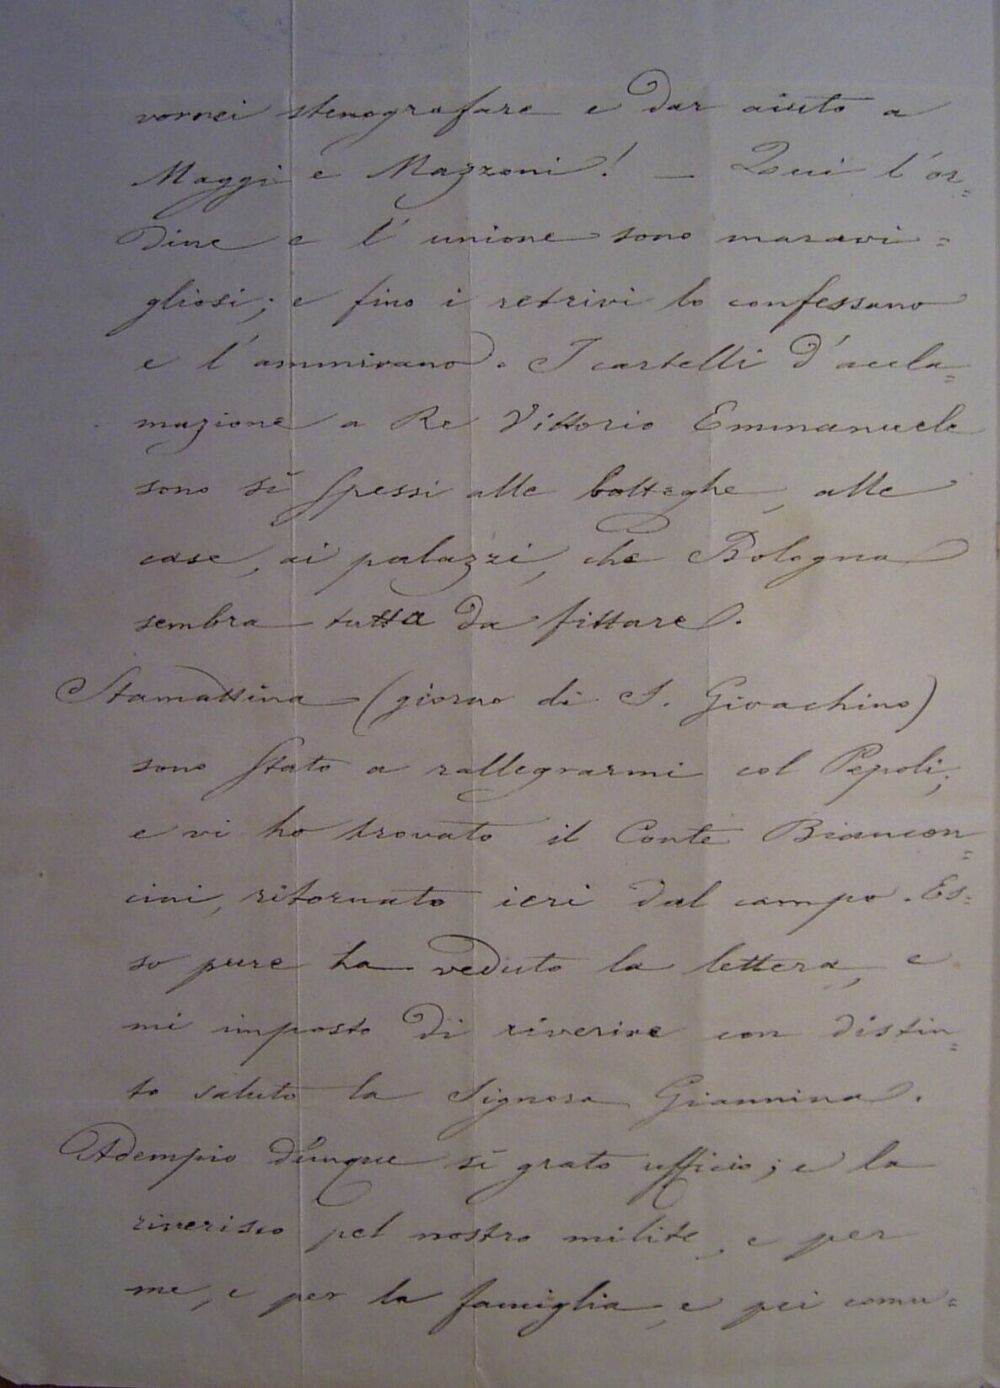 vorrei stenografare e dar aiuto a
Maggi e Mazzoni! — Qui l'or=
dine e l'unione sono maravi=
gliosi; e fino i retrivi lo confessano
e l'ammirano. I cartelli d'accla=
mazione a Re Vittorio Emmanuele
sono sì spessi alle botteghe, alle
case, ai palazzi, che Bologna
sembra tutta da fittare.
Stamattina (giorno di S. Gioachino)
sono stato a rallegrarmi col Pepoli;
e vi ho trovato il Conte Biancon=
cini, ritornato ieri dal campo. Es=
so pure ha veduto la lettera, e
mi imposto di riverire con distin=
to saluto la Signora Giannina.
Adempio dunque sì grato ufficio; e la
riverisco pel nostro milite, e per
me, e per la famiglia, e pei comu=